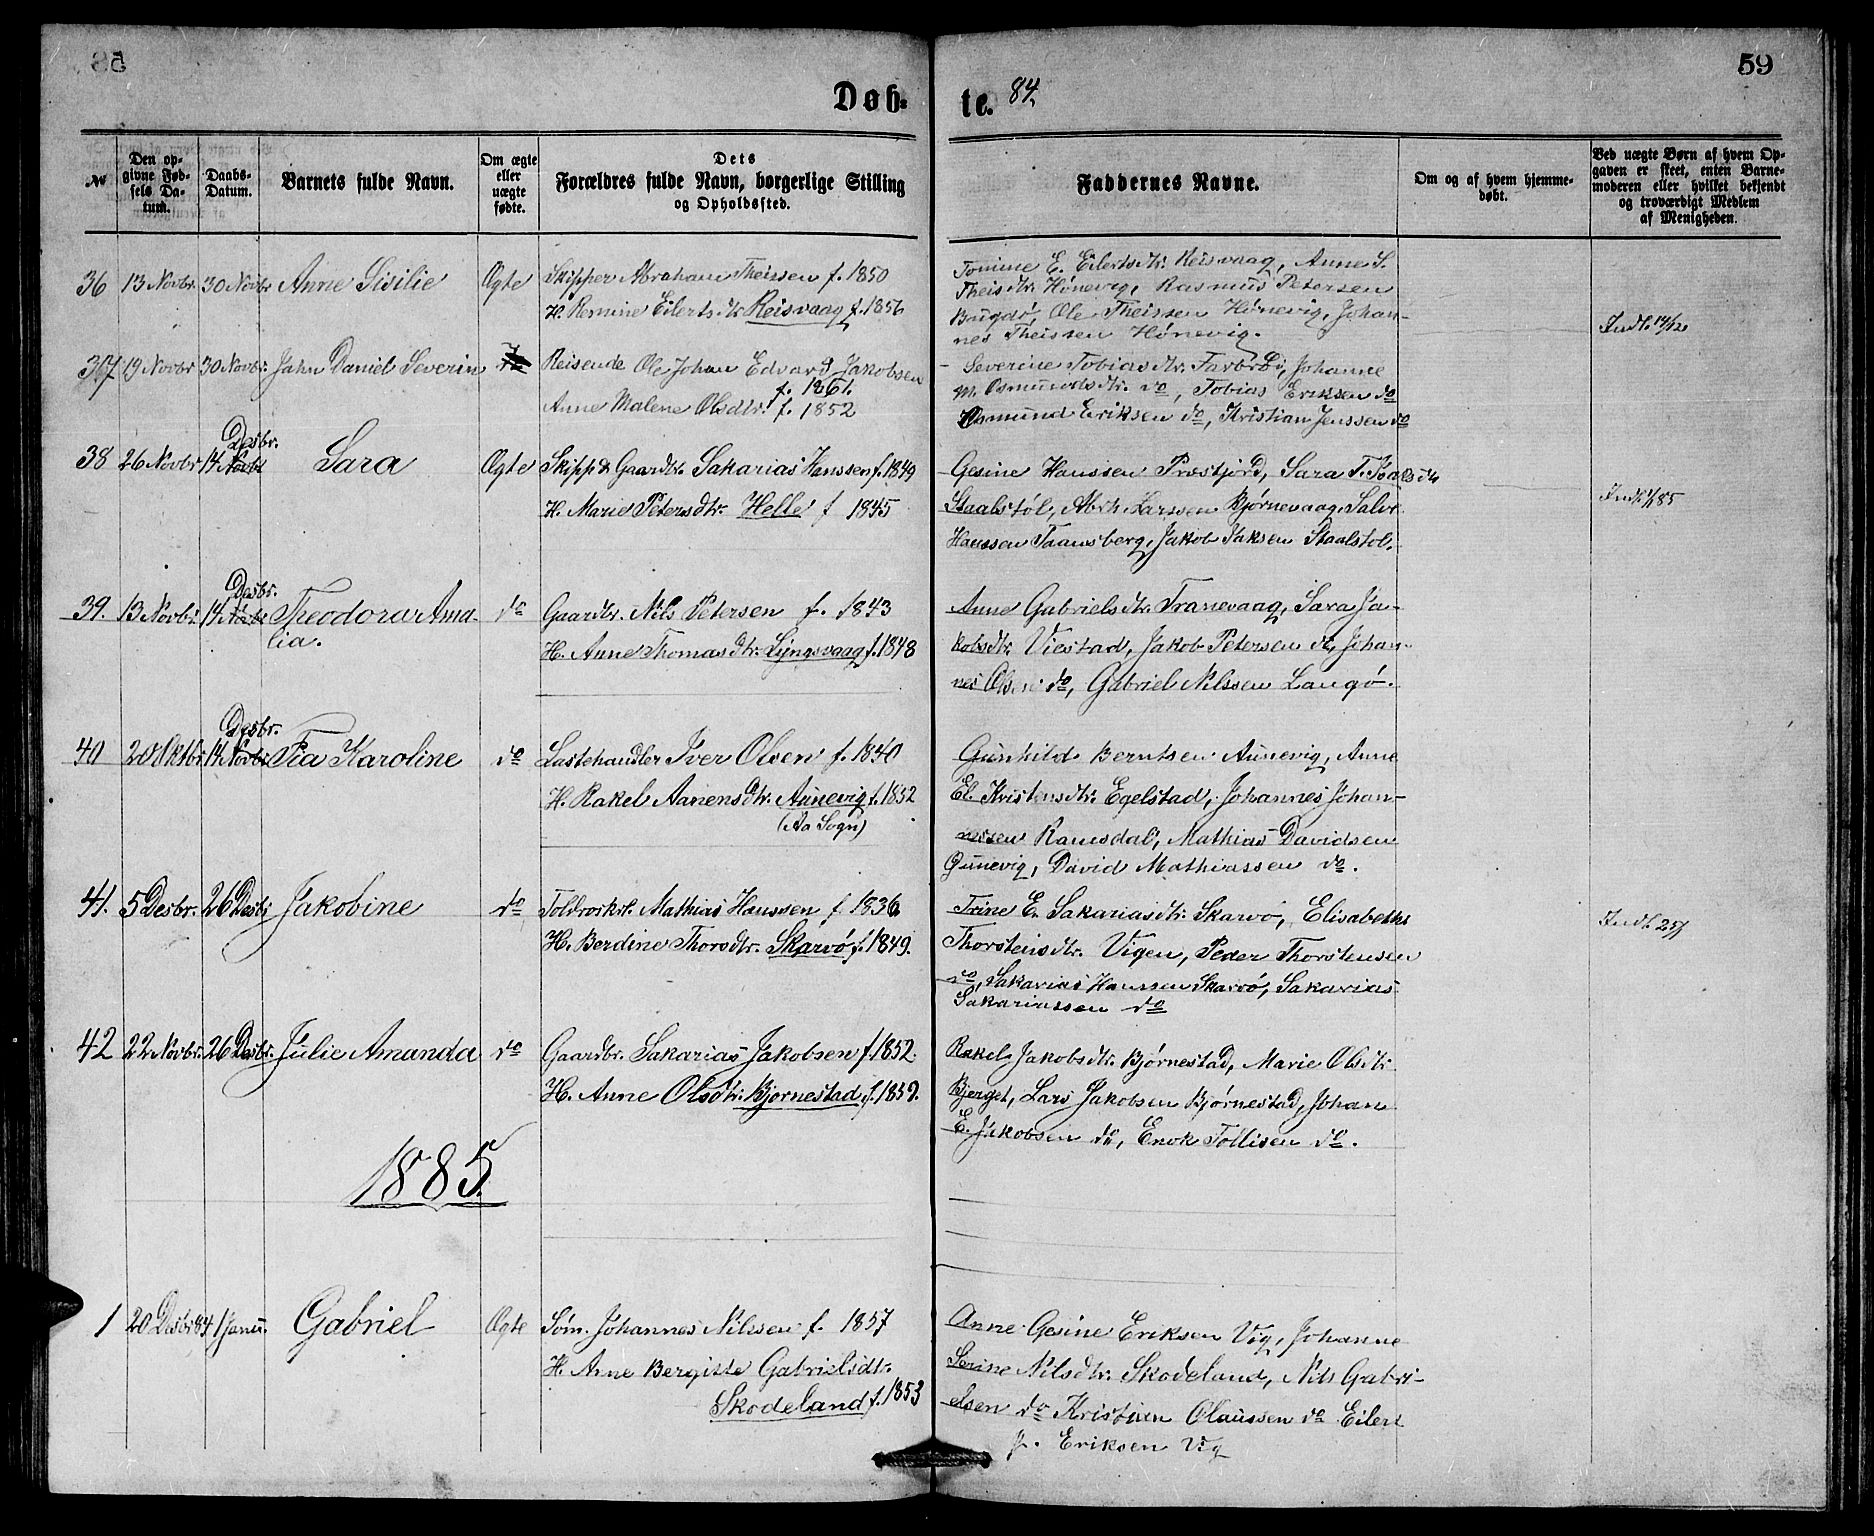 59
Døb-
te. 84.
№
Den op-
givne Fød-
sels Da-
tum.
Daabs-
Datum.
Barnets fulde Navn.
Om ægte
eller
uægte
fødte.
Dets
Forældres fulde Navn, borgerlige Stilling
og Opholdssted.
Faddernes Navne.
Om og af hvem hjemme-
døbt.
Ved uægte Børn af hvem Op-
gaven er skeet, enten Barne-
moderen eller hvilket bekjendt
og troværdigt Medlem
af Menigheden.
36 13 Novbr. 30 Novbr Anne Sisilie Ægte Skipper Abraham Theissen f. 1850
H. Remine Eilerts.dtr Reisvaag f. 1856
Tomine E. Eilertsdtr. Reisvaag, Anne S.
Theisdtr. Hønevig, Rasmus Petersen
Bugdø, Ole Theissen Hønevig, Johan-
nes Theissen Hønevig.
Indl. 14/12
37 19 Novbr 30 Novbr. Jahn Daniel Severin Reisende Ole Johan Edvard Jakobsen
f. 1861.
Anne Malene Olsdtr. f. 1852
Severine Tobiasdtr. Farbrød, Johanne
M. Osmundsdtr. do, Tobias Eriksen do
Osmund Eriksen do, Kristian Jenssen do
38 26 Novbr 14 Novbr Desbr. Sara Ægte Skipp & Gaardbr. Sakarias Hanssen f. 1849
H. Marie Petersdtr. Helle f 1845
Gesine Hanssen Præstjord, Sara T. Isaksdtr
Staalstøl, Abrh. Larssen Bjørnevaag, Salve
Hanssen Taansberg, Jakob Isaksen Staalstøl.
Indl. 1/1 85
39. 13 Novbr. 14 Novbr Desbr. Theodora Ama-
lia.
do Gaardbr. Nils Petersen f. 1843
H. Anne Thomasdtr. Lyngsvaag f. 1848
Anne Gabrielsdtr. Tranevaag, Sara Ja-
kobsdtr Viestad, Jakob Petersen do, Johan-
nes Olsen do, Gabriel Nilssen Langø.
40 20 Oktbr. 14 Novbr Desbr. Fia Karoline do Lastehandler Iver Olsen f. 1840
H. Rakel Aanensdtr. Aunevig f. 1852
(Aa Sogn)
Gunhild Berntsen Aunevig, Anne
El. Kristensdtr. Egelstad, Johannes Johan-
nessen Ramsdal, Mathias Davidsen
Qunevig, David Mathiassen do.
41. 5 Desbr. 26 Desbr Jakobine do Toldrorkrl. Mathias Hanssen f. 1836
H. Berdine Thorsdtr. Skarvø f. 1849.
Trine E. Sakariasdtr. Skarvø, Elisabeths
Thorstensdtr. Vigen, Peder Thorstensen
do, Sakarias Hanssen Skarvø, Sakarias
Sakariassen do
42 22 Novbr. 26 Desbr. Julie Amanda do Gaardbr. Sakarias Jakobsen f. 1852.
H. Anne Olsdtr. Bjørnestad f. 1859.
Rakel Jakobsdtr. Bjørnestad, Marie Olsdtr.
Bjerget, Lars Jakobsen Bjørnestad, Johan
E. Jakobsen do, Enok Tollisen do.
1885.
1 20 Desbr 84 1 Janu. Gabriel Ægte Søm. Johannes Nilssen f. 1857
H. Anne Bergitte Gabrielsdtr.
Skodeland f. 1853
Anne Gesine Eriksen Vig, Johanne
Serine Nilsdtr. Skodeland, Nils Gabri-
elsen do Kristian Olaussen do Eilert
J. Eriksen Vig